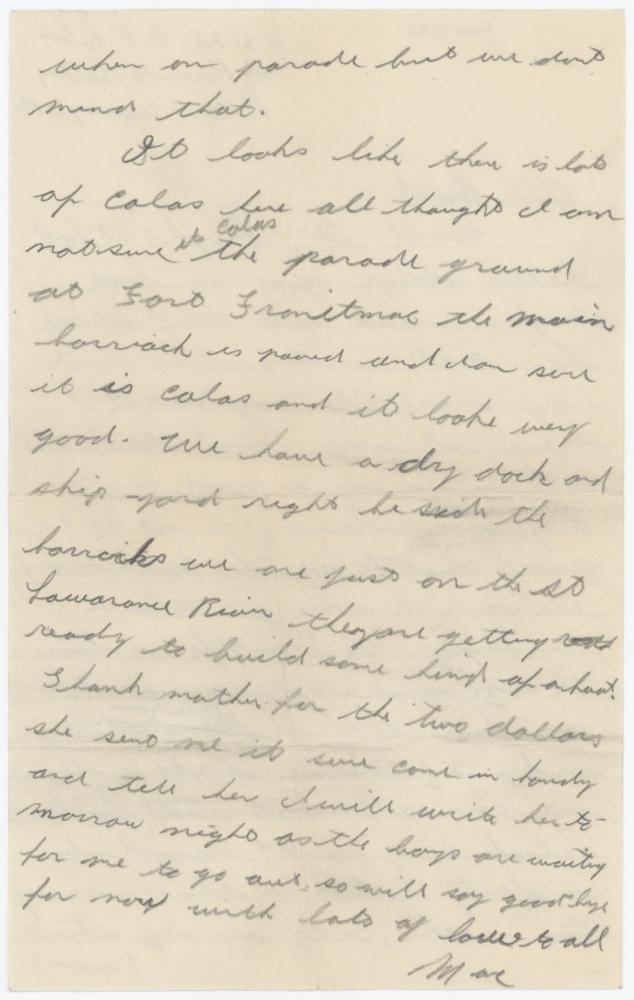 when on parade but we dont
mind that.
It looks like there is lots
of Calas here all thought I am
not sure its Calas the parade ground
at Fort Fronitmac the main
barriack is paved and I am sure
it is Calas and it looke very
good. We have a dry dock and
ship-yard right be side the
barricks we are just on the St
Lawarance River they are getting
ready to build some kind of a boat.
Thank mother for the two dollars
she seno me it sure come in handy
and tell her I will write her to-
morrow night as the boys are waiting
for me to go out, so will say good bye
for now with lots of love to all
Mac